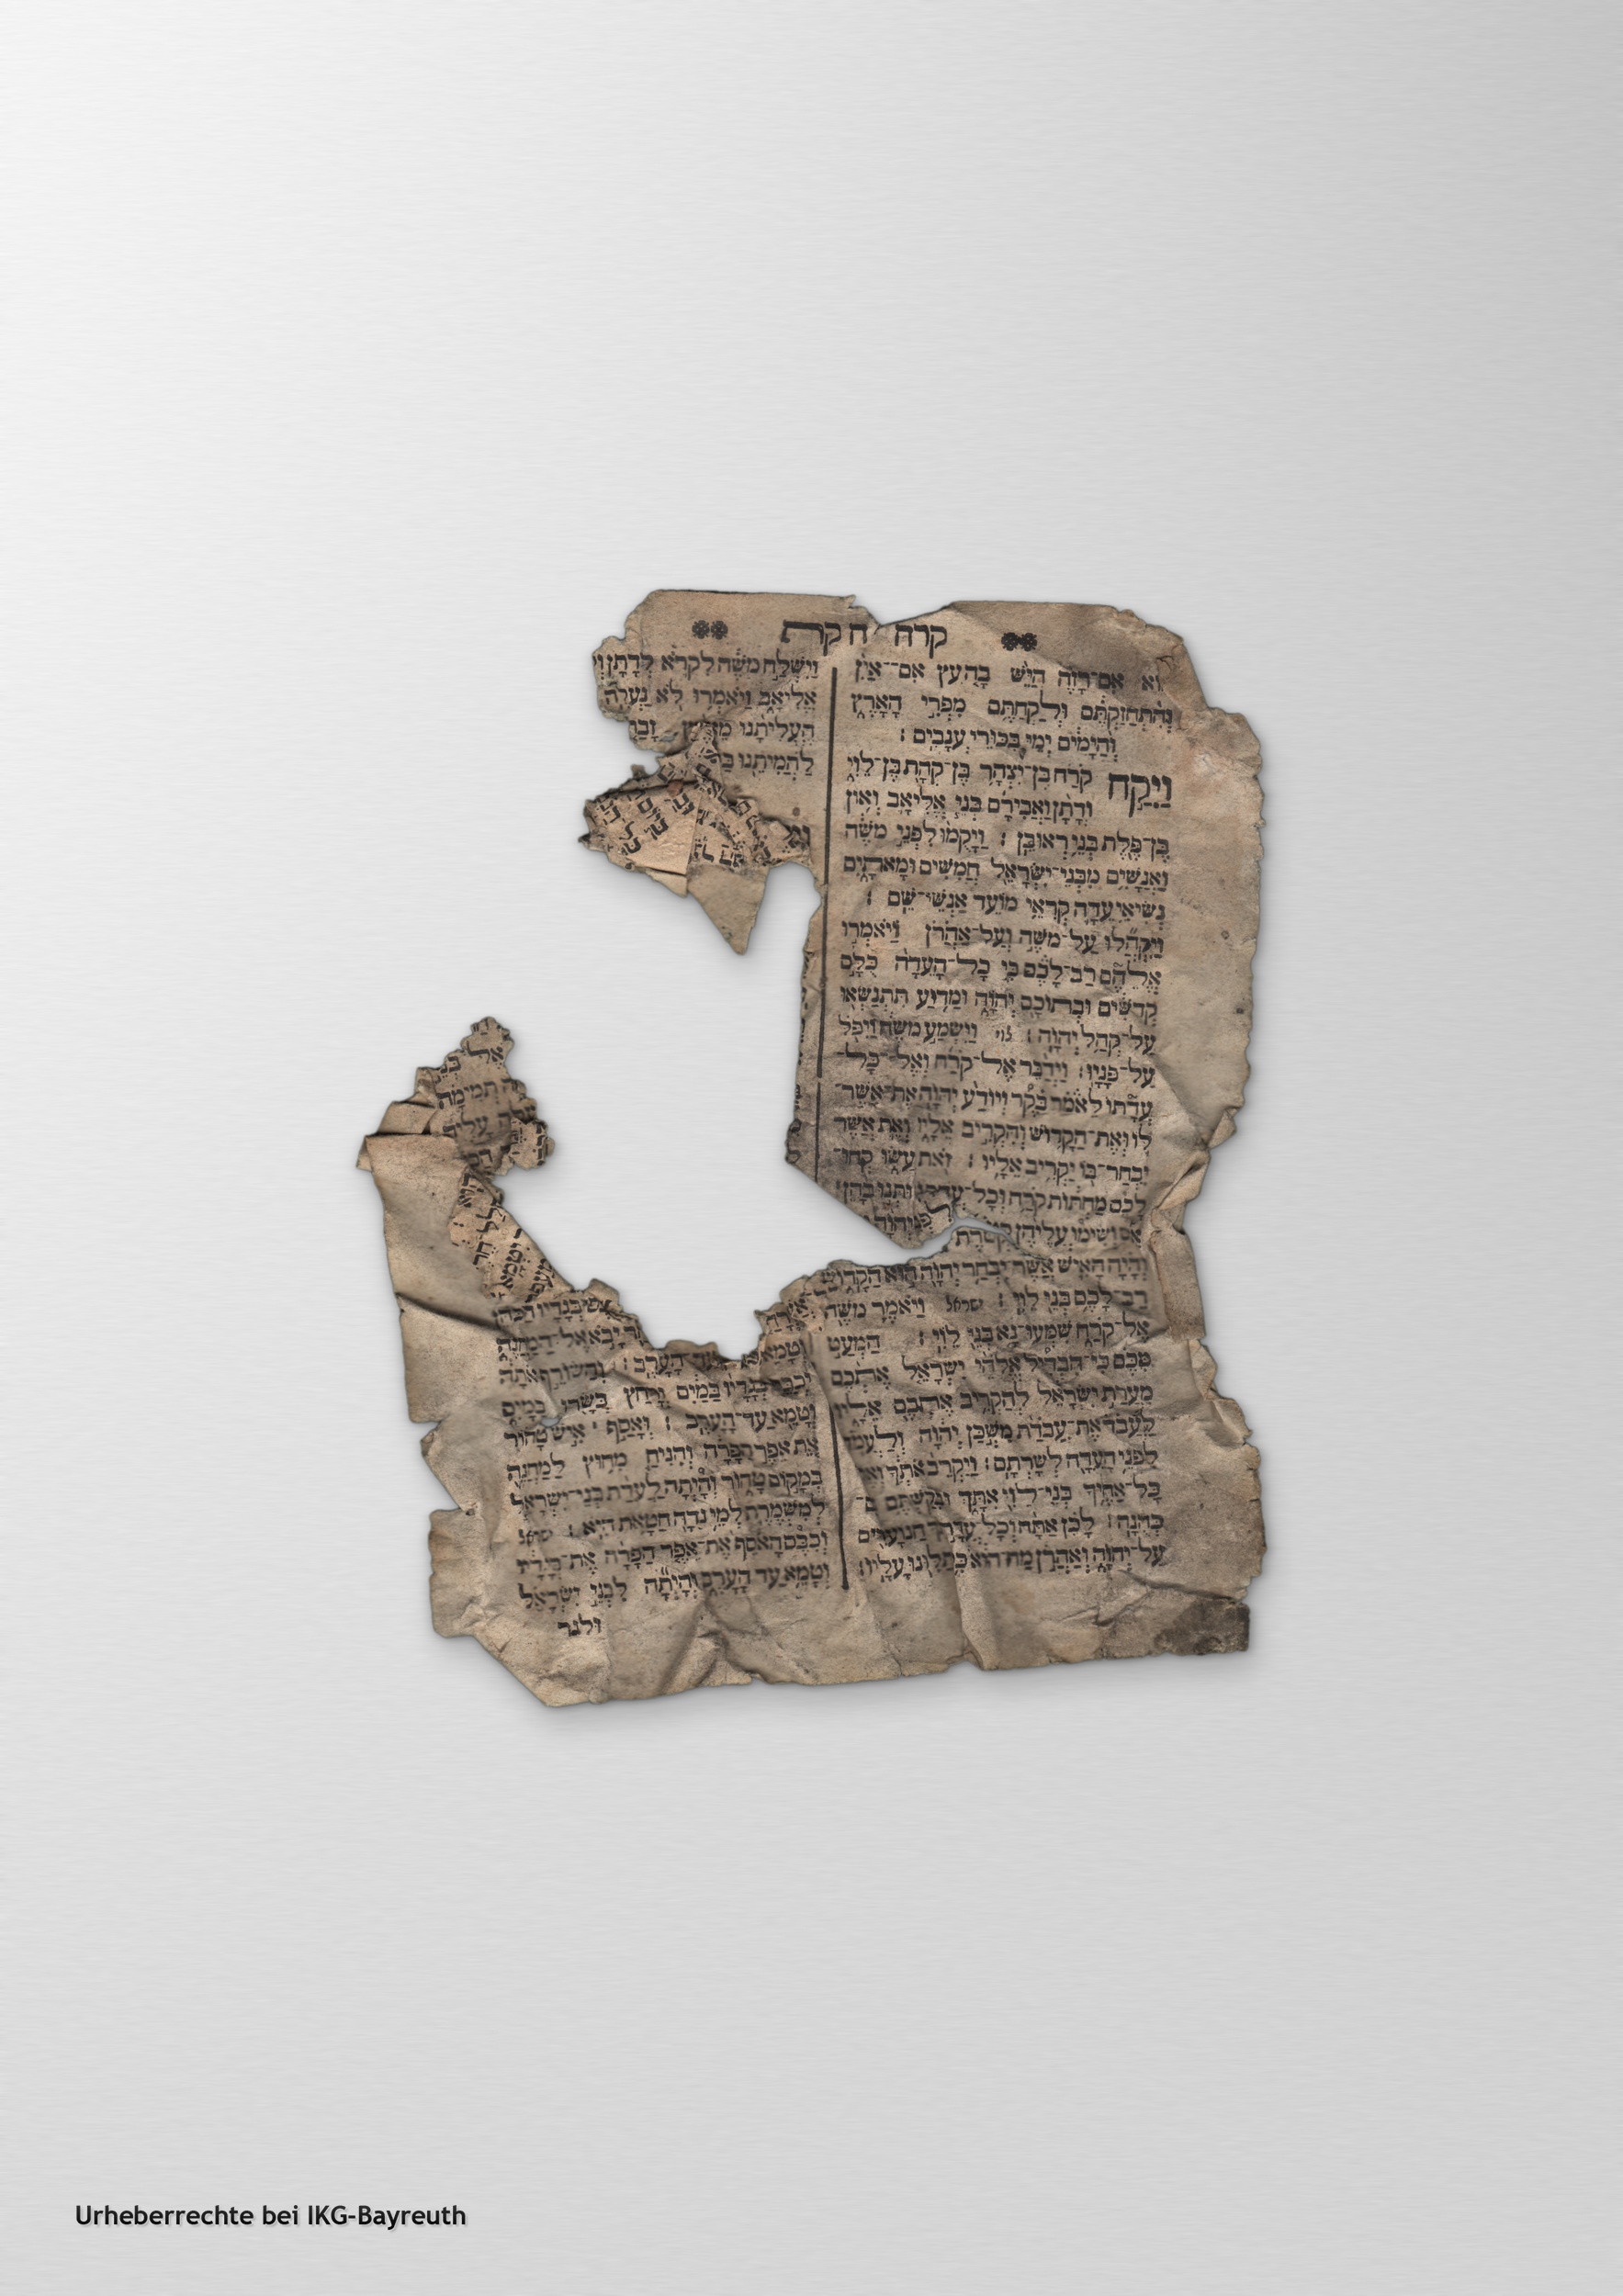 קרח חקת
הוא אם־רזה היש בה עץ אם־אין
והתחזקתם ולקחתם מפרי הארץ
והימים ימי בכורי ענבים :
ויקח קרח בן־יצהר בן־קהת בן־לוי
ודתן ואבירם בני אליאב ואון
בן־פלת בני ראובן : ויקמו לפני משה
ואנשים מבני־ישראל חמשים ומאתים
נשיאי עדה קראי מועד אנשי־שם :
ויקהלו על־משה ועל־אהרן ויאמרו
אלהם רב־לכם כי כל־העדה כלם
קדשים ובתוכם יהוה ומדוע תתנשאו
על־קהל יהוה : לוי וישמע משה ויפל
על־פניו : וידבר אל־קרח ואל־כל־
עדתו לאמר בקר וידע יהוה את־אשר־
לו ואת־הקדוש והקריב אליו ואת אשר
יבחר־בו יקריב אליו : זאת עשו קחו־
לכם מחתות קרח וכל־עדתו : ותנו בהן
אש ושימו עליהן קטרת לפני יהוה
והיה האיש אשר־יבחר יהוה הוא הקדוש
רב־לכם בני לוי : ישראל ויאמר משה
אל־קרח שמעו־נא בני לוי : המעט
מכם כי־הבדיל אלהי ישראל אתכם
מעדת ישראל להקריב אתכם אליו
לעבד את־עבדת משכן יהוה ולעמד
לפני העדה לשרתם : ויקרב אתך ואת
כל־אחיך בני־לוי אתך ובקשתם גם־
כהנה : לכן אתה וכל־עדתך הנועדים
על־יהוה ואהרן מה־הוא כי תלונו עליו :
וישלח משה לקרא לדתן ו
אליאב ויאמרו לא נעלה
העליתנו זבת
להמיתנו
בגדיו הכהן
יבא אל־המחנה
וטמא עד־הערב : והשרף אתה
יכבס בגדיו במים ורחץ בשרו במים
וטמא עד־הערב : ואסף איש טהור
את אפר הפרה והניח מחוץ למחנה
במקום טהור והיתה לעדת בני־ישראל
למשמרת למי נדה חטאת הוא : ישראל
וכבס האסף את־אפר הפרה את־בגדיו
וטמא עד־הערב והיתה לבני ישראל
ולגר
Urheberrechte bei IKG-Bayreuth